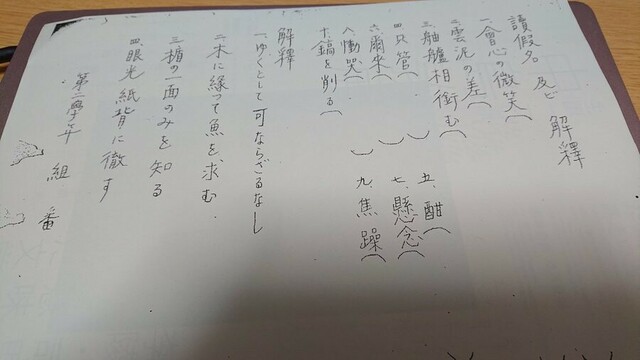 讀假名 及ビ 解釋
一、會心の微笑（
二、雲泥の差（
三、舳艫相銜む（
四、只管（　　）五、酣（
六、爾来（　　）七、懸念（
八、慟哭（　　）九、焦躁（
十、鎬を削る（
解釋
一、ゆくとして可ならざるなし
二、木に縁って魚を求む
三、楯の一面のみを知る
四、眼光紙背に徹す
第二學年　組　番